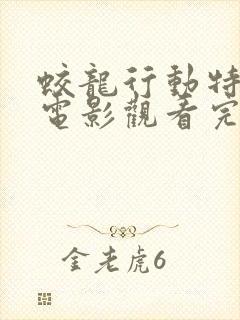 蛟龍行動特
電影觀看完
金老虎6